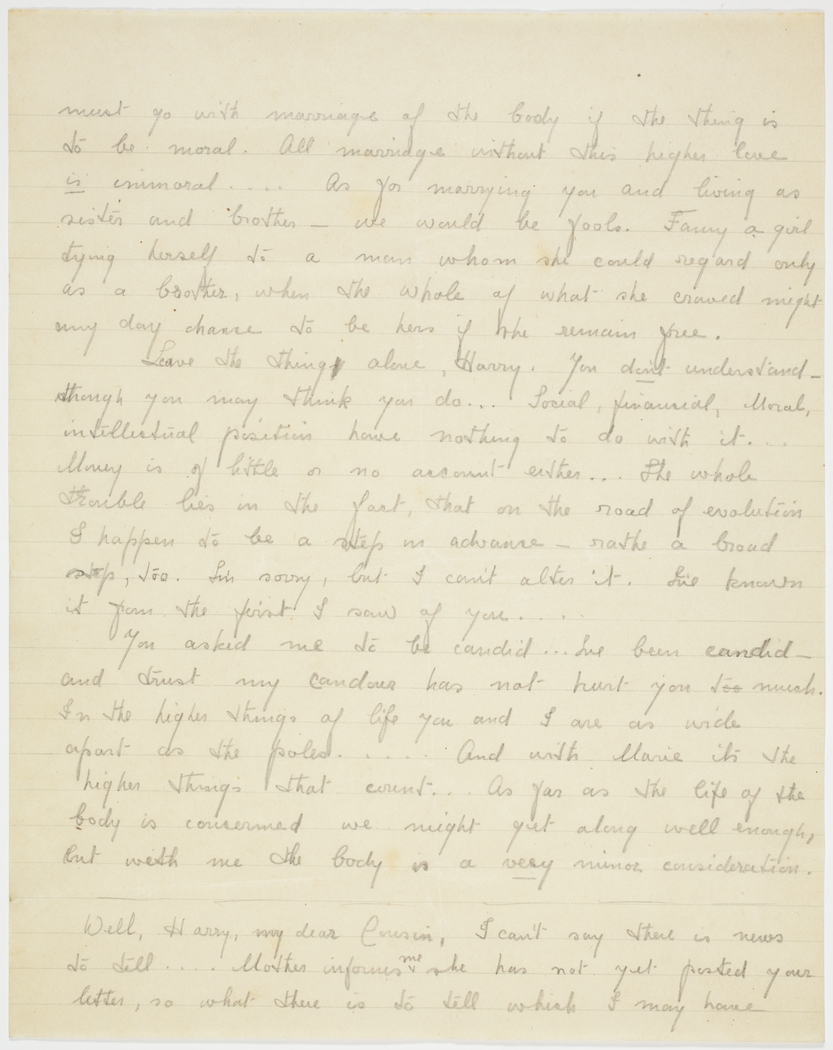 must go with marriage of the body if the thing is
to be moral. All marriage without this higher love
is immoral .... As for marrying you and living as
sister and brother — we would be fools. Fancy a girl
tying herself to a man whom she could regard only
as a brother, when the whole of what she craved might
any day chance to be hers if she remain free.
Leave the thing alone, Harry. You don't understand —
though you may think you do... Social, financial, Moral,
intellectual position have nothing to do with it...
Money is of little or no account either... The whole
trouble lies in the fact, that on the road of evolution
I happen to be a step in advance — rathe a broad
step, too. I'm sorry, but I can't alter it. I've known
it from the first I saw of you....
You asked me to be candid... I've been candid —
and trust my candour has not hurt you too much.
In the higher things of life you and I are as wide
apart as the poles..... And with Marie its the
higher things that count... As far as the life of the
body is concerned we might get along well enough,
but with me the body is a very minor consideration.
Well, Harry, my dear Cousin, I can't say there is news
to tell .... Mother informs me she has not yet posted your
letter, so what there is to tell which I may have